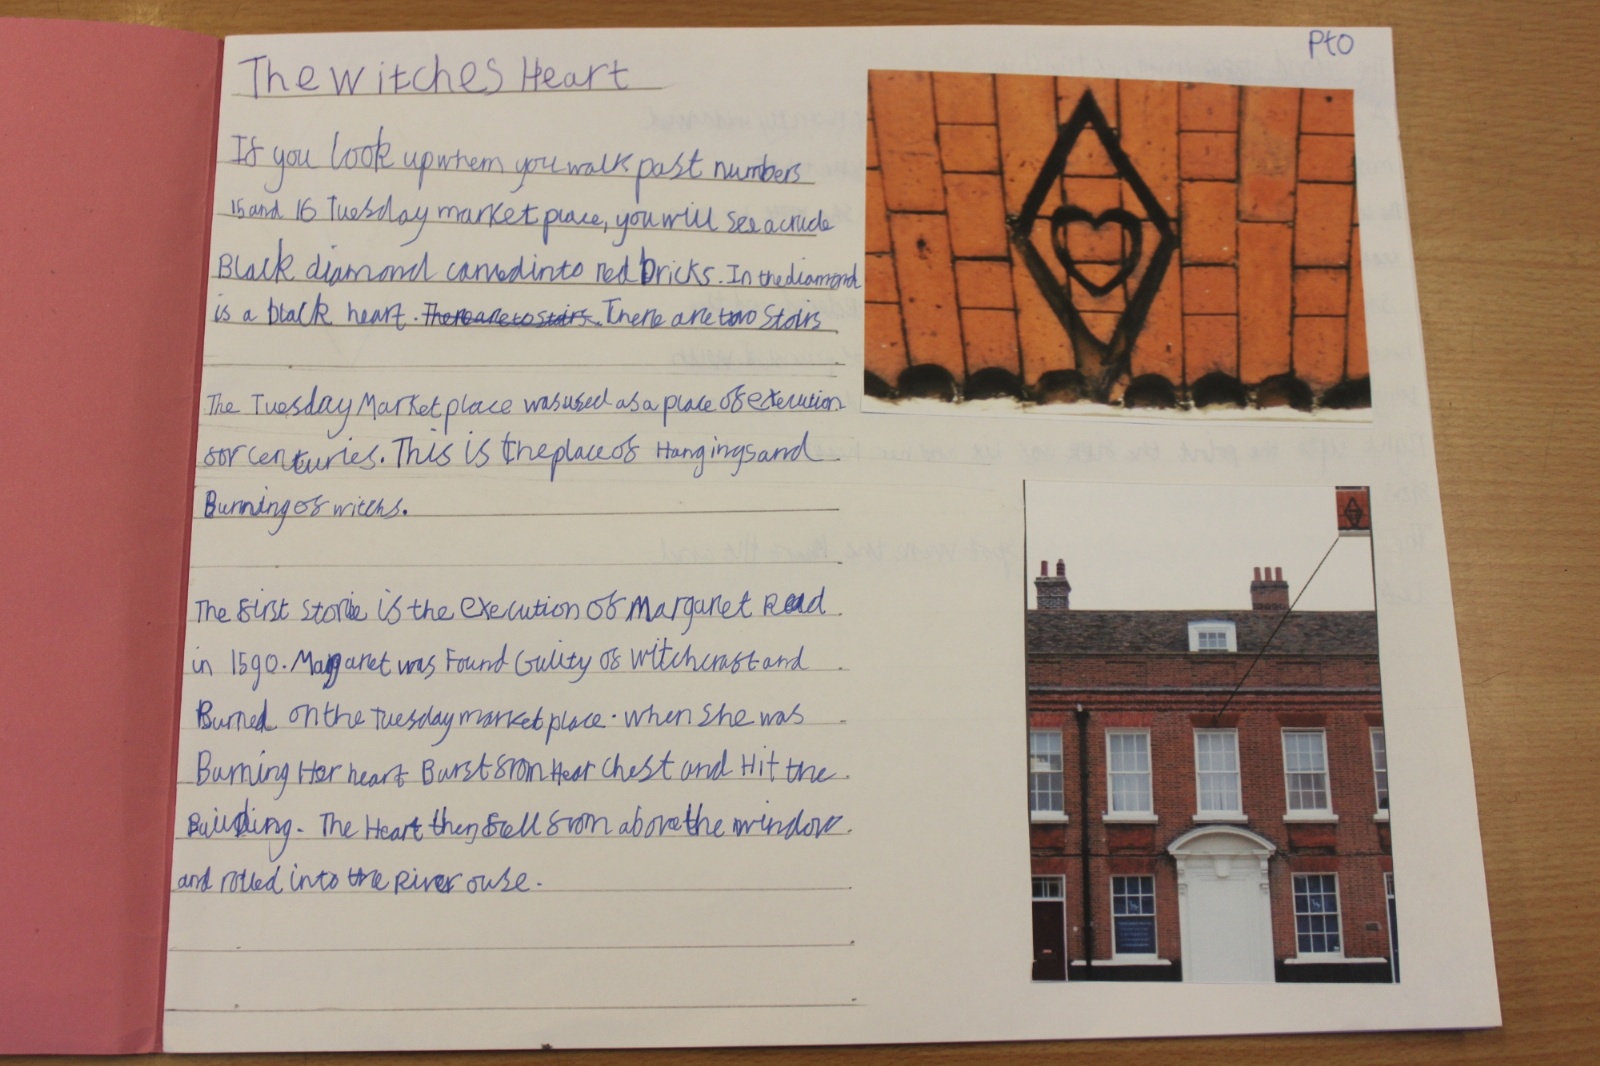 Pto
The Witches Heart
If you look up when you walk past numbers
15 and 16 Tuesday market place, you will see a crude
Black diamond carved into red bricks. In the diamond
is a black heart. There are to stairs. There are two Stoirs
The Tuesday Market place was used as a place of execution
for centuries. This is the place of Hangings and
Burning of witchs.
The first storie is the execution of Margaret Read
in 1590. Margaret was Found Guilty of witchcraft and
Burned on the Tuesday market place. when she was
Burning Her heart Burst from Hear chest and Hit the
Building. The Heart then fell from above the window
and rolled into the River ouse.